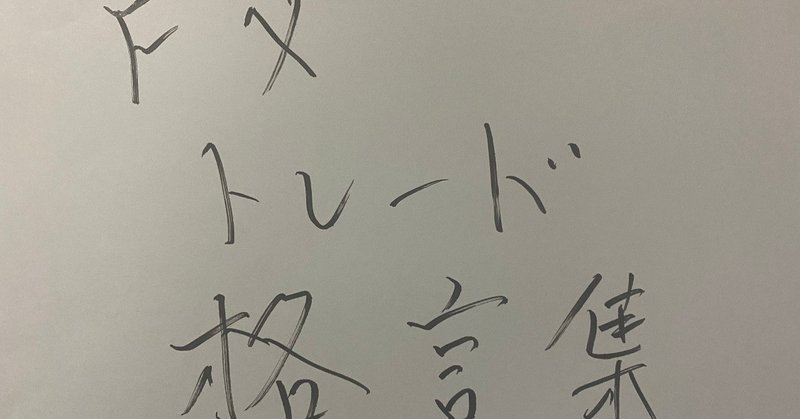 FX
トレード
格言集